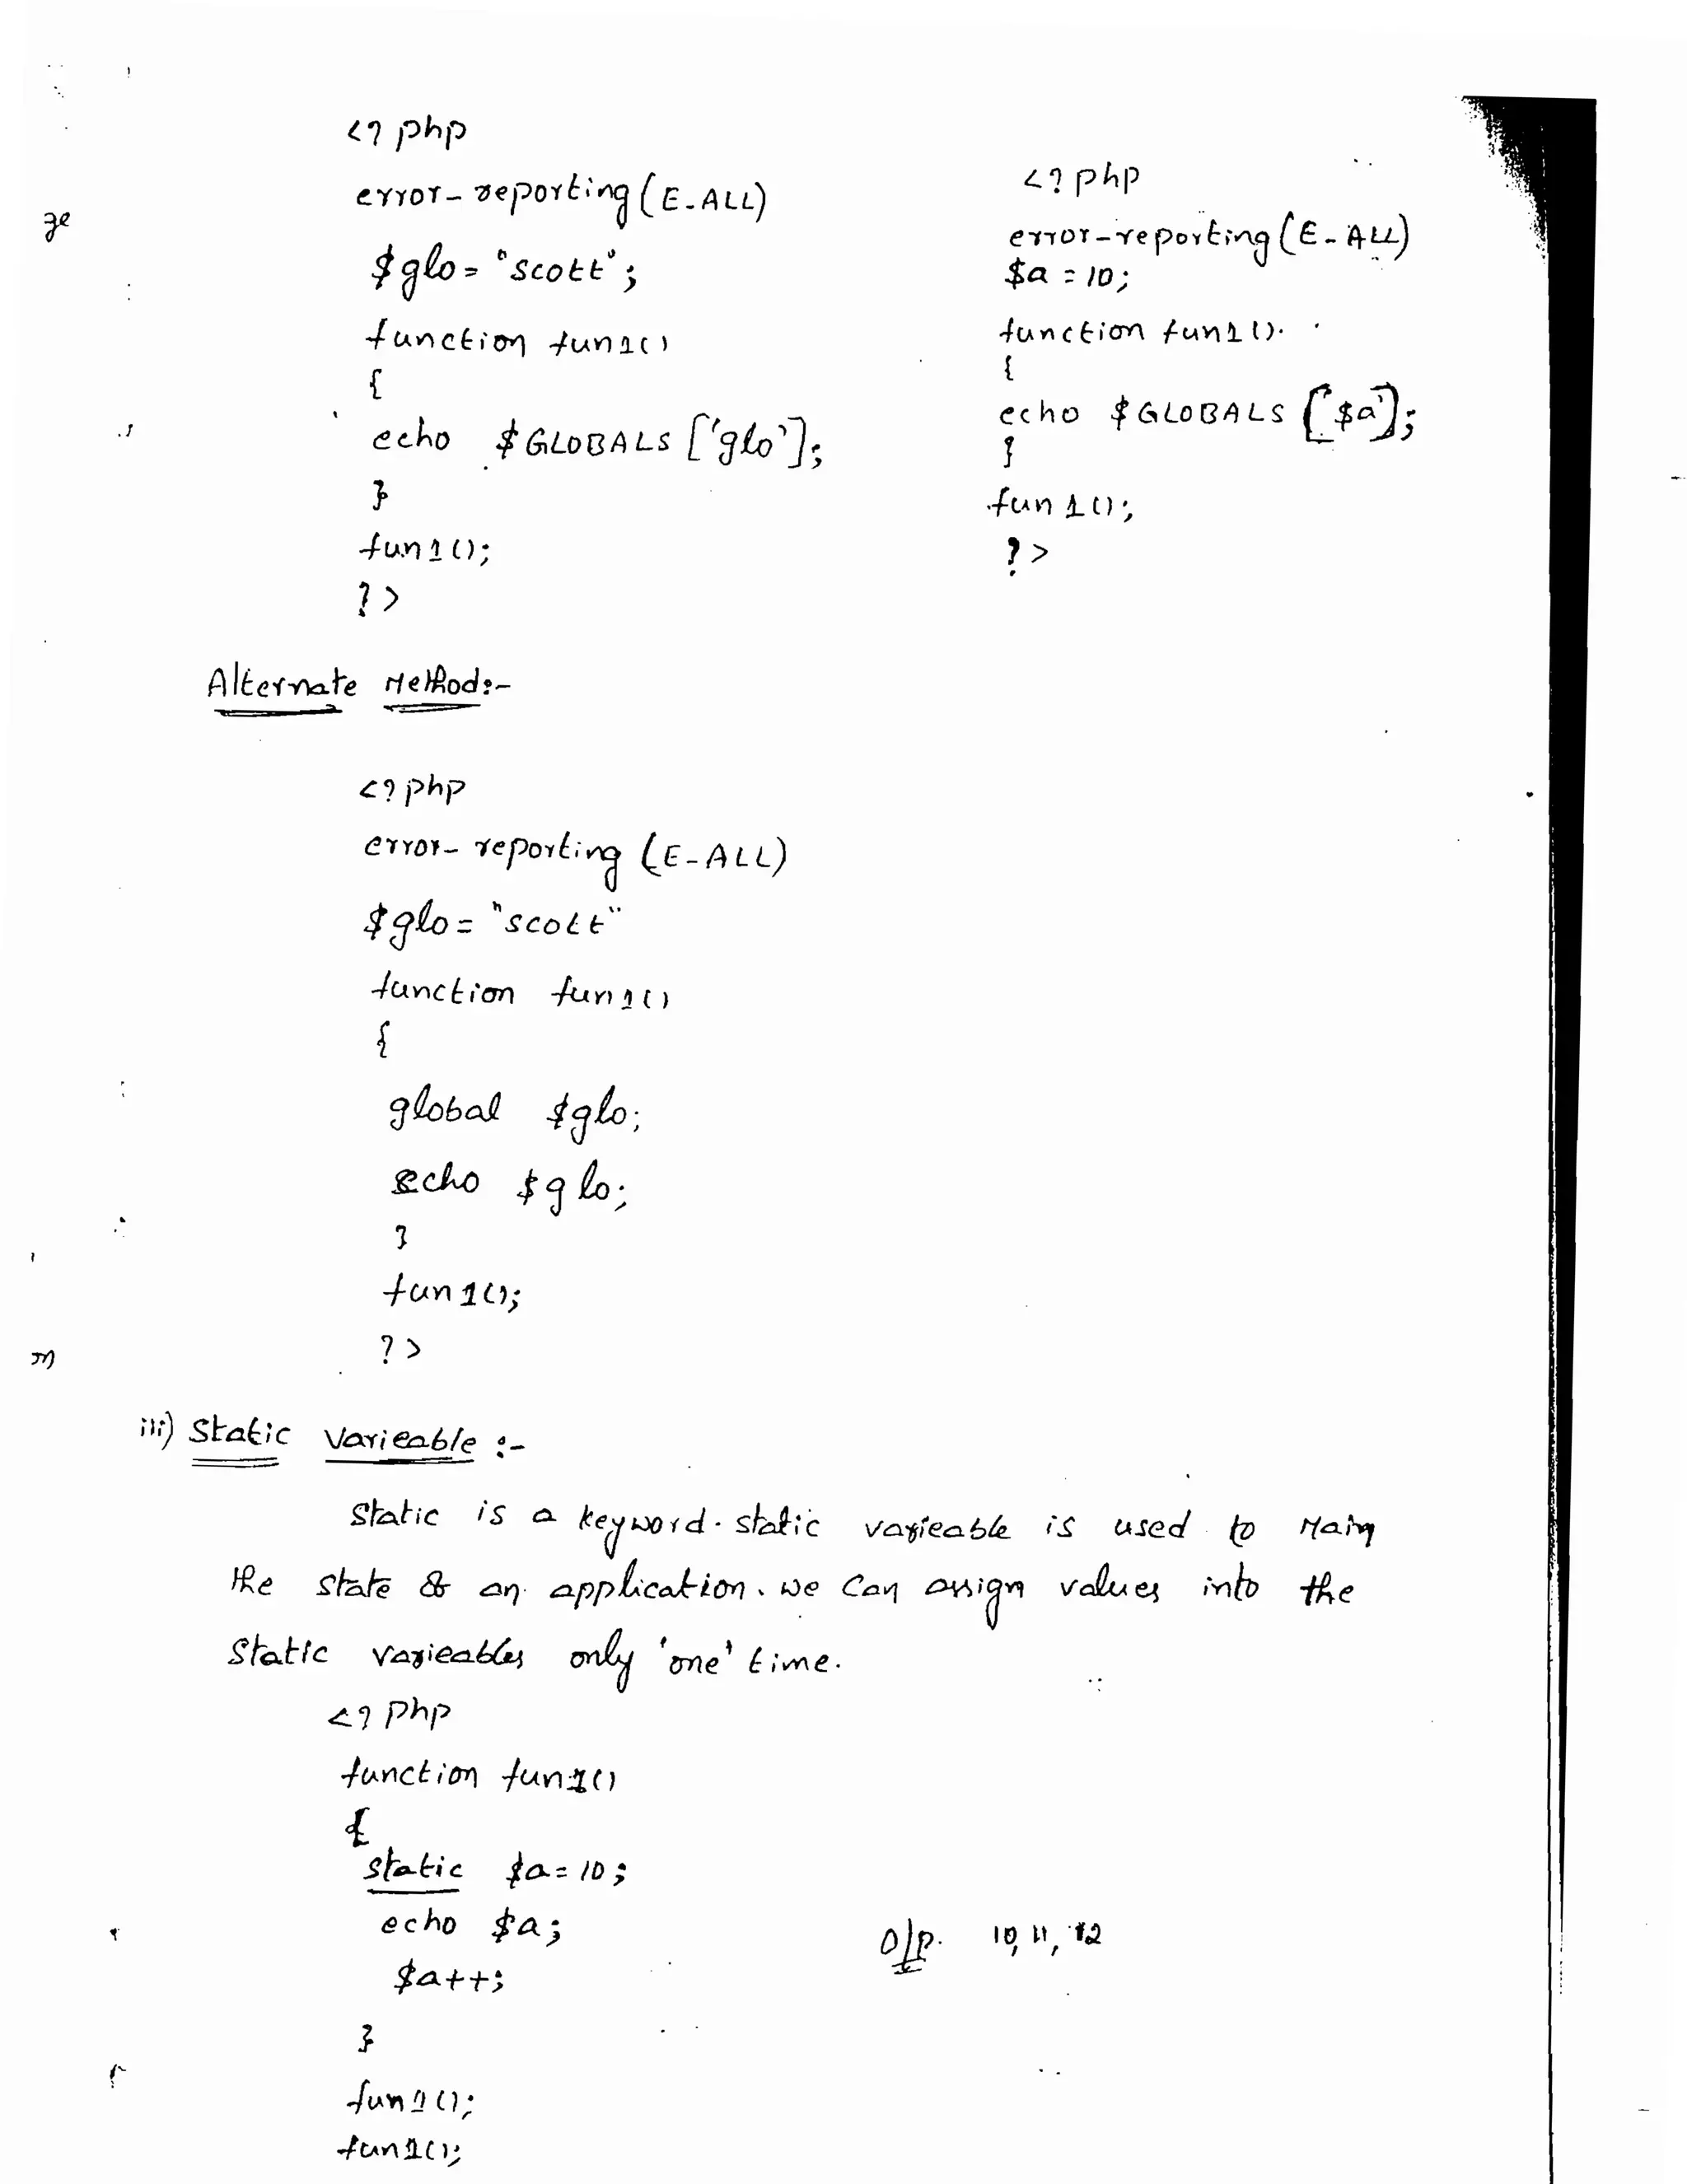 <? php
error_reporting (E_ALL)
$glo = "scott";
function fun1()
{
echo $GLOBALS ['glo'];
}
fun1();
?>
<? php
error_reporting (E_ALL)
$a = 10;
function fun1()
{
echo $GLOBALS ['$a'];
}
fun1();
?>
ge
Alternate Method:-
<? php
error_reporting (E_ALL)
$glo = "scott"
function fun1()
{
global $glo;
echo $glo;
}
fun1();
?>
m
iii) Static Varieable :-
Static is a keyword. static varieable is used to Main
the state & an application. we can assign values into the
Static varieables only 'one' time.
<? php
function fun1()
{
static $a = 10;
echo $a;
$a++;
}
O/P. 10, 11, 12
fun1();
fun1();